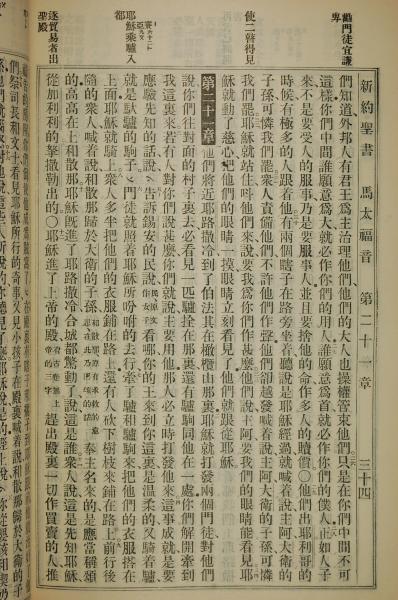 新約聖書 馬太福音 第二十一章 三十四
門徒宜謙卑
們知道外邦人有君王爲主治理他們他們的大人也操權管束他們只是在你們中間不可
這樣你們中間誰願意爲大就必作你們的用人誰願意爲首就必作你們的僕人正如人子
來不是要受人的服事乃是要服事人並且要捨他的命作多人的贖價〇他們出耶利哥的
時候有極多的人跟着他有兩個瞎子在路旁坐着聽說是耶穌經過就喊着說主阿大衛的
子孫可憐我們罷衆人責備他們不許他們作聲他們卻越發喊着說主阿大衛的子孫可憐
使二瞽得見
我們罷耶穌就站住叫他們來說要我爲你們作甚麼他們說主阿要我們的眼睛能看見耶
穌就動了慈心把他們的眼睛一摸眼睛立刻看見了他們就跟從耶穌
第二十一章 他們將近耶路撒冷到了伯法其在橄欖山那裏耶穌就打發兩個門徒對他們
說你們往對面的村子裏去必看見一匹驢拴在那裏還有驢駒同在一處你們解開牽到
我這裏來若有人對你們說甚麼你們就說主要用他那人必立時打發他來這事成就是要
應驗先知的話說告訴錫安的民說 民原文作女子 看哪你的王來到你這裏是溫柔的又騎着驢
耶穌乘驢入都
就是驢的駒子門徒就照耶穌所吩咐的去行牽了驢和驢駒來把他們的衣服搭在
上面耶穌就騎上衆人多半把他們的衣服鋪在路上還有人砍下樹枝來鋪在路上前行後
隨的衆人喊着說和散那歸於大衛的子孫 奉主名來的是應當稱頌
的高高在上和散那耶穌旣進了耶路撒冷合城都驚動了說這是誰衆人說這是先知耶穌
逐貿易者出聖殿
從加利利的拏撒勒出的〇耶穌進了上帝的殿 帝的三字 趕出殿裏一切作買賣的人推